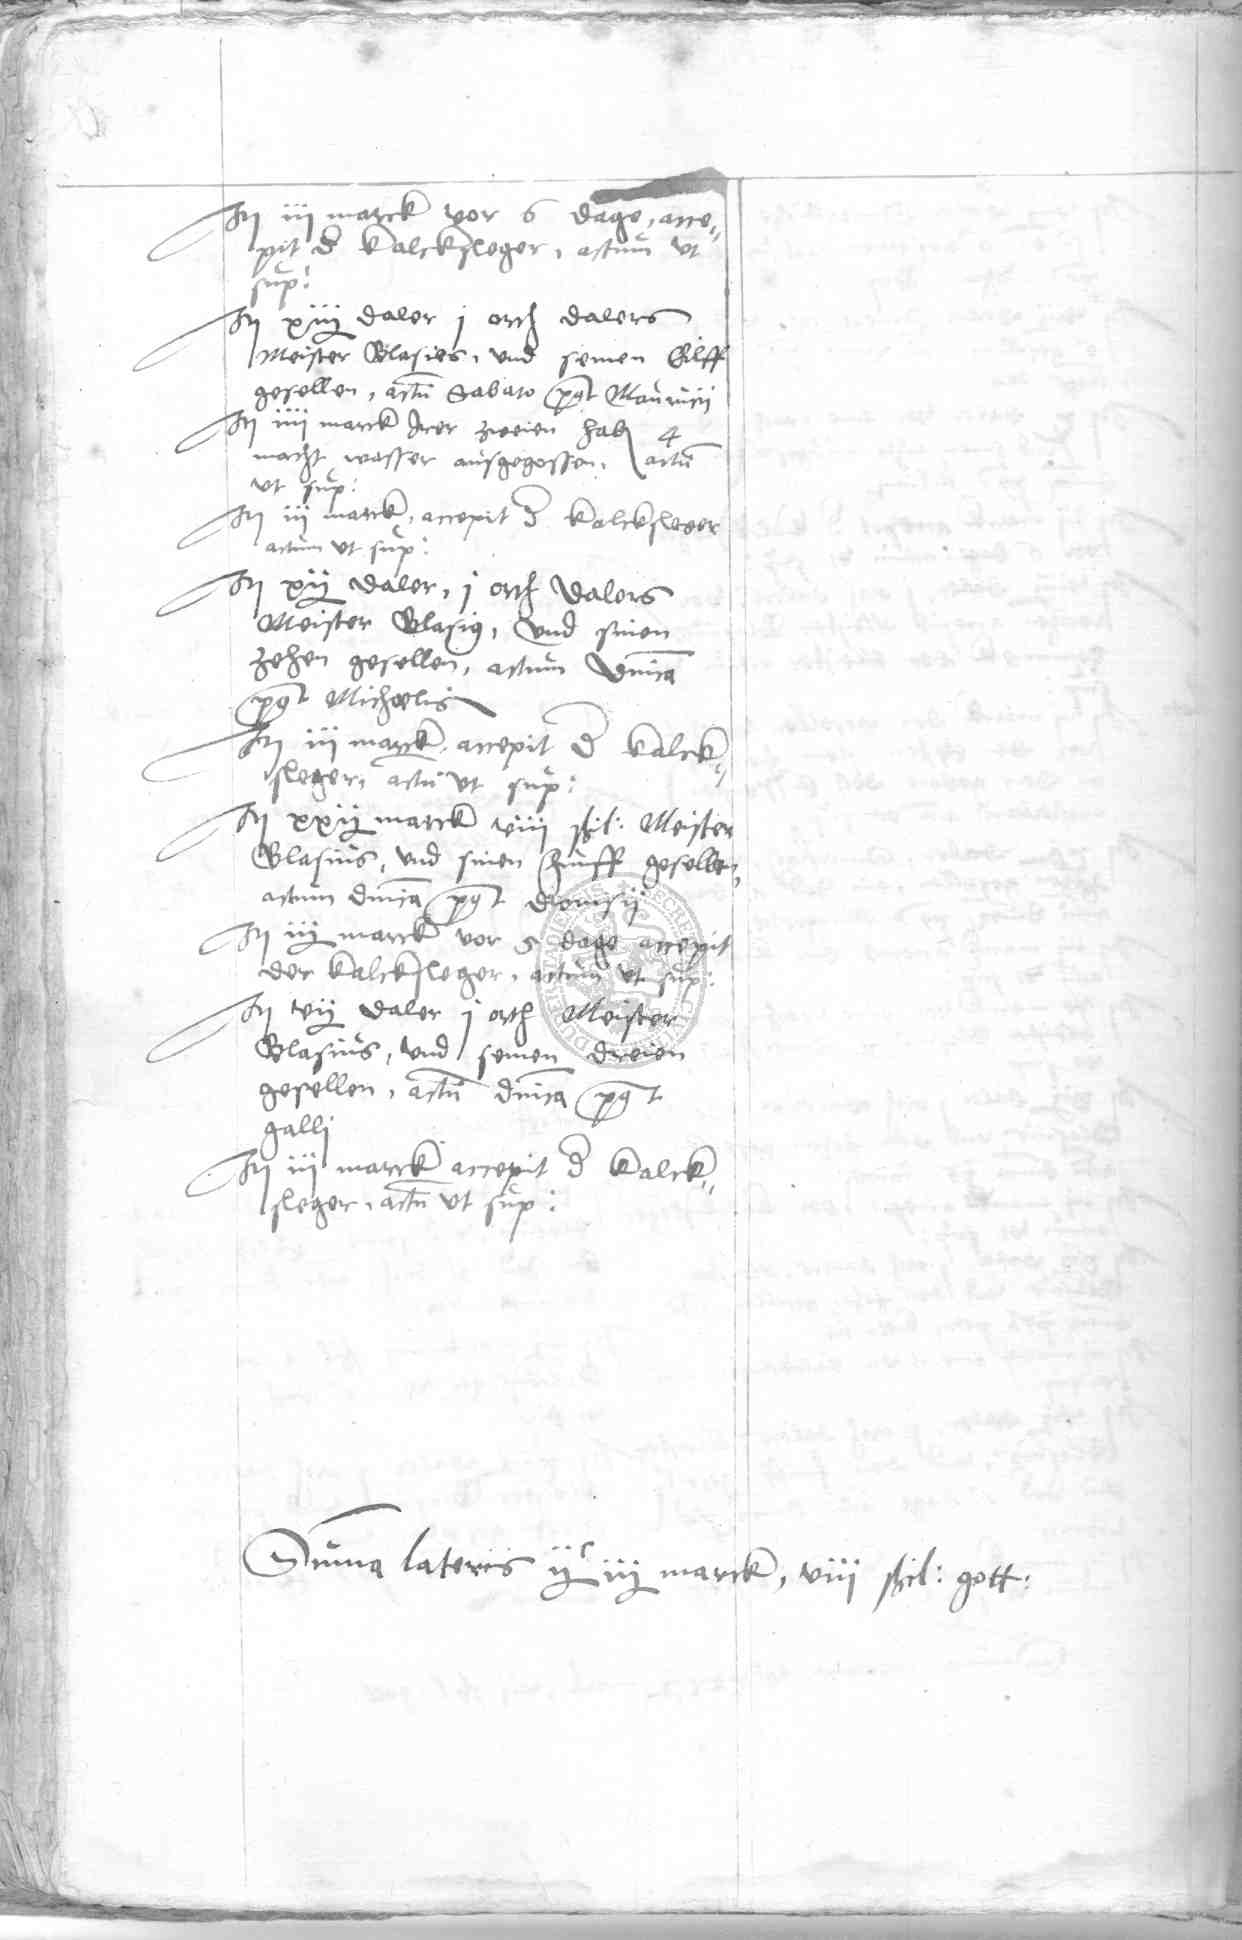 It iii marck vor 6 dage, acce„
pit d kalcksleger, actum ut
sup:
It xiij daler j orth dalers
Meister Blasies, und seinen Eilff
gesellen, actu Sabato post Mauricij
It iiii marck Irer zweien hab 4
nacht wasser ausgegossen, actu
ut sup:
It iii marck, accepit d kalcksleger
actum ut sup:
It xij daler, j orth dalers
Meister Blasius, und sinen
zehen gesellen, actum dnica
post Michaelis
It iii marck, accepit d kalck„
sleger, actu ut sup:
It xxij marck viii shil: Meister
Blasius, und sinen gesellen
actum dnica post Dionisij
It iij marck vor 5 dage accepit
der kalcksleger, actum ut sup:
It vij daler j orth Meister
Blasius, und seinen dreien
gesellen, actu dnica post
galli
It iii marck accepit d kalck„
sleger, actu ut sup:
Suma lateris ijc iij marck, viii shil: gott: